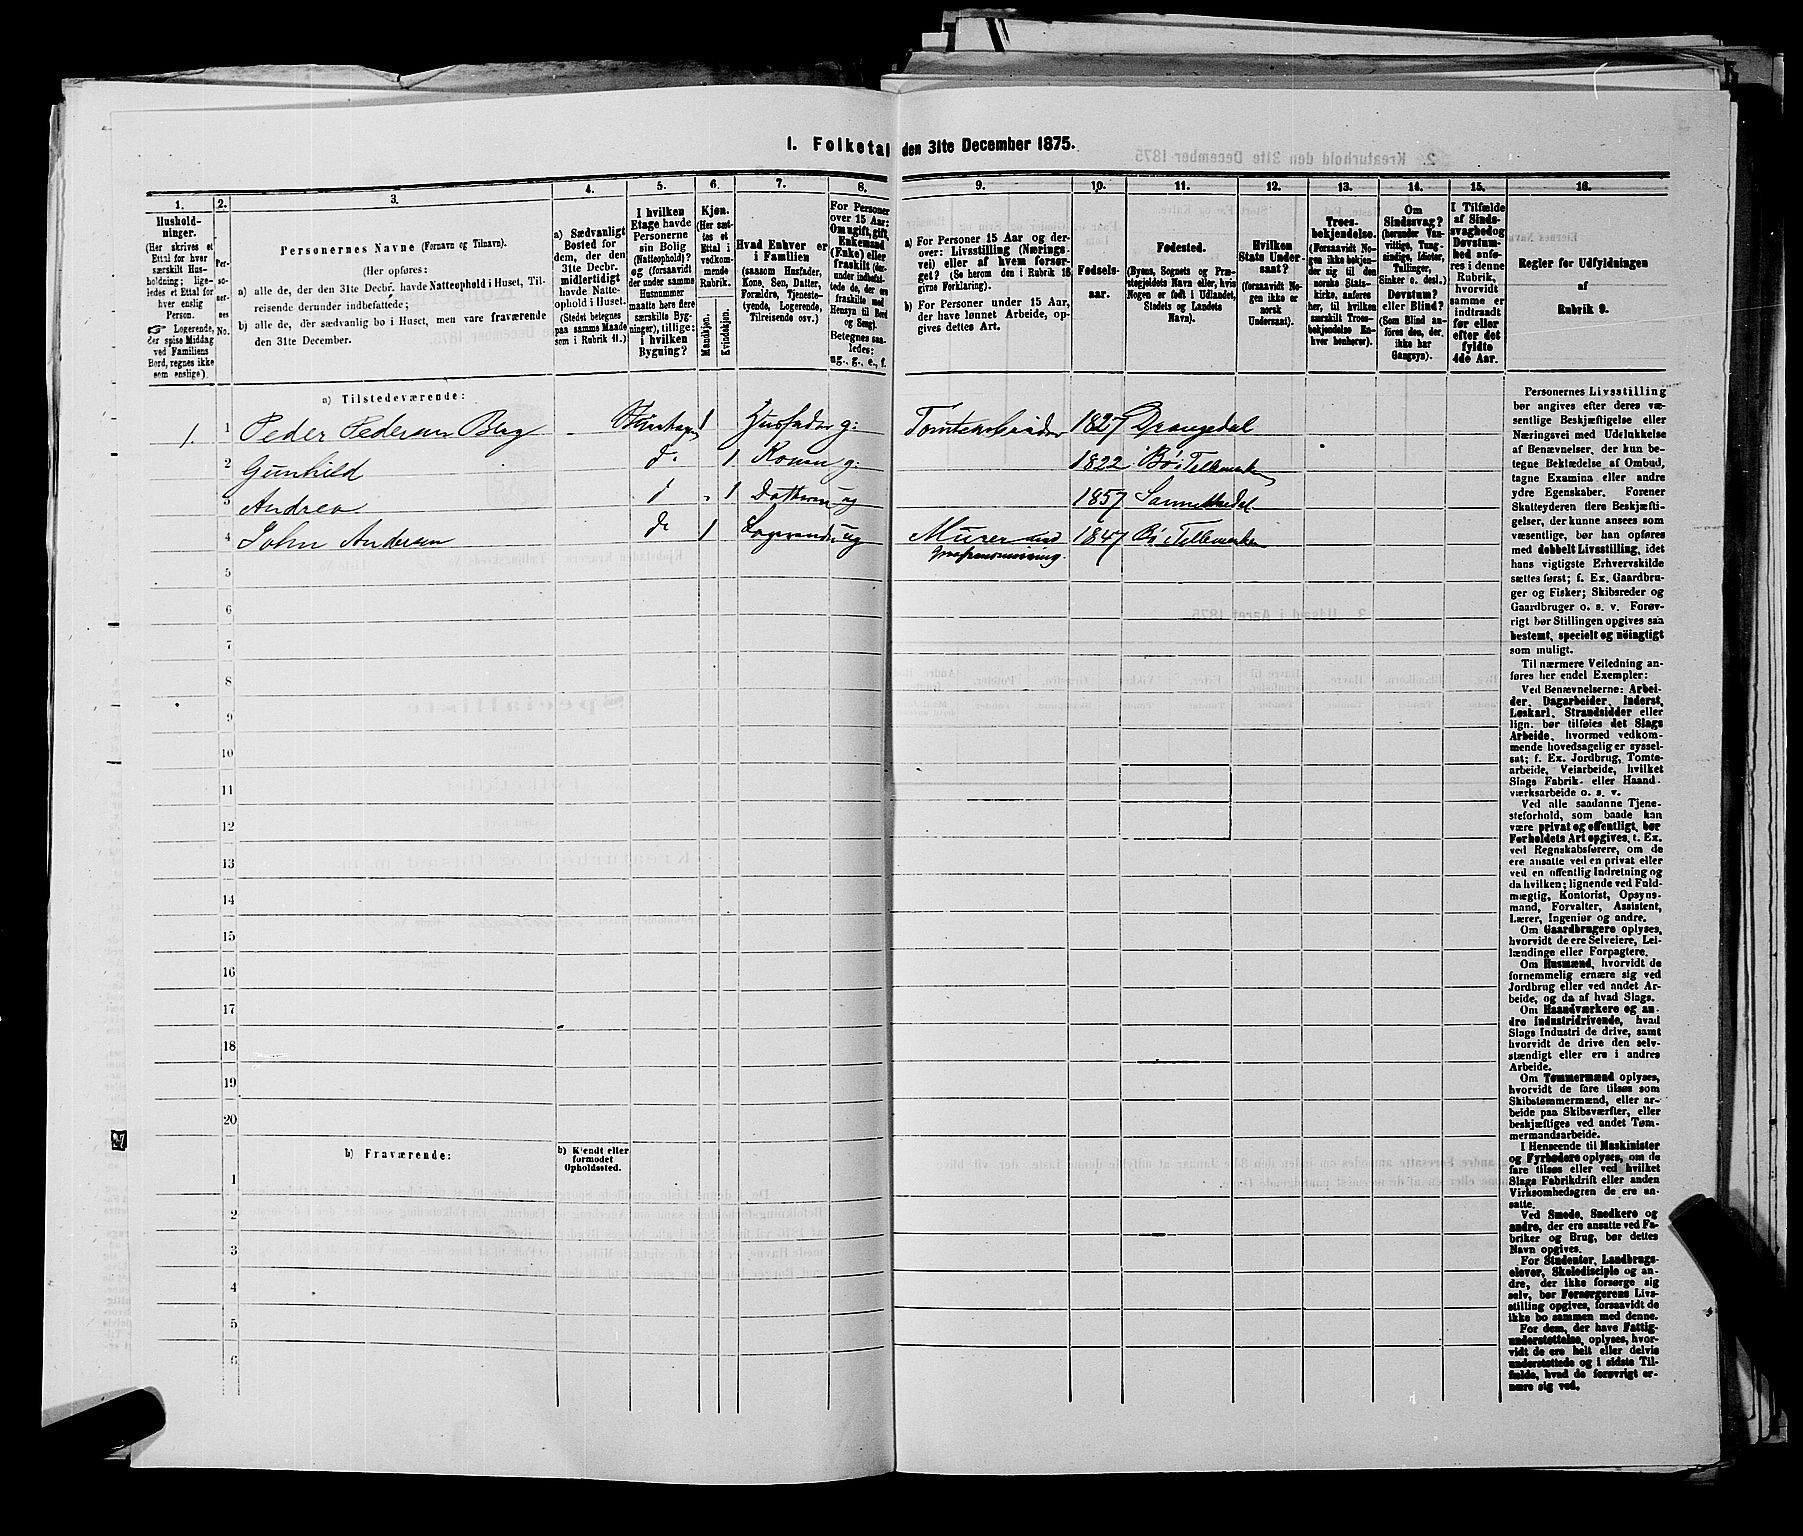 1. Folketal den 31te December 1875.
1.
Hushold-
ninger.
(Her skrives et
Ettal for hver
særskilt Hus-
holdning; lige-
ledes et Ettal for
hver enslig
Person.
☞ Logerende,
der spise Middag
ved Familiens
Bord, regnes ikke
som enslige).
2.
Per-
so-
ner-
nes
No.
3.
Personernes Navne (Fornavn og Tilnavn).
(Her opføres:
a) alle de, der den 31te Decbr. havde Natteophold i Huset, Til-
reisende derunder indbefattede;
b) alle de, der sædvanlig bo i Huset, men vare fraværende
den 31te December.
4.
a) Sædvanligt
Bosted for
dem, der den
31te Decbr.
midlertidigt
havde Natte-
ophold i Huset.
(Stedet betegnes
paa samme Maade
som i Rubrik 11.)
5.
I hvilken
Etage havde
Personerne
sin Bolig
(Natteophold)?
og (forsaavidt
der under samme
Husnummer
maatte høre flere
særskilte Byg-
ninger), tillige:
i hvilken
Bygning?
6.
Kjøn.
(Her sæt-
tes et
Ettal i
vedkom-
mende
Rubrik.
Mandkjøn.
Kvindekjøn.
7.
Hvad Enhver er
i Familien
(saasom Husfader,
Kone, Søn, Datter,
Forældre, Tjeneste-
tyende, Logerende,
Tilreisende osv.)
8.
For Personer
over 15 Aar:
Om ugift, gift,
Enkemand
(Enke) eller
fraskilt (der-
under indbefat-
tede de, der ere
fraskilte med
Hensyn til Bord
og Seng).
Betegnes saa-
ledes:
ug., g., e., f.
9.
a) For Personer 15 Aar og der-
over: Livsstilling (Nærings-
vei) eller af hvem forsør-
get? (Se herom den i Rubrik 16
givne Forklaring).
b) For Personer under 15 Aar,
der have lønnet Arbeide, op-
gives dettes Art.
10.
Fødsels-
aar.
11.
Fødested.
(Byens, Sognets og Præ-
stegjeldets Navn eller, hvis
Nogen er født i Udlandet,
Stedets og Landets
Navn).
12.
Hvilken
Stats Under-
saat?
(forsaavidt No-
gen ikke er
norsk
Undersaat).
13.
Troes-
bekjendelse.
(Forsaavidt No-
gen ikke bekjen-
der sig til den
norske Stats-
kirke, anføres
her, til hvilken
særskilt Troes-
bekjendelse En-
hver henhører).
14.
Om
Sindssvag?
(herunder Van-
vittige, Tung-
sindige, Idioter,
Tullinger,
Sinker o. desl.)
Døvstum?
eller Blind?
(Som Blind an-
føres den, der
ikke har
Gangsyn).
15.
I Tilfælde
af Sinds-
svaghed og
Døvstum-
hed anfø-
res i denne
Rubrik,
hvorvidt
samme er
indtraadt
før eller
efter det
fyldte
4de Aar.
16.
Regler for Udfyldningen
af
Rubrik 9.
a) Tilstedeværende:
1 1 Peder Pedersen Berg 1 Husfader g: Tomtearbeider 1827 Drangedal
2 Gunhild do 1 Konen g: 1822 Bø i Telemarken
3 Andrea d 1 Datteren ug 1857 Sannikedal
4 John Andersen do 1 Logerende ug Murer 1847 Bø Telemarken
5
6
7
8
9
10
11
12
13
14
15
16
17
18
19
20
b) Fraværende:
b) Kjendt eller
formodet
Opholdssted.
1
2
3
4
5
6
Personernes Livsstilling
bør angives efter deres væ-
sentlige Beskjæftigelse eller
Næringsvei med Udelukkelse
af Benævnelser, der kun be-
tegne Beklædelse af Ombud,
tagne Examina eller andre
ydre Egenskaber. Forener
Skatteyderen flere Beskjæfti-
gelser, der kunne ansees som
væsentlige, bør han opføres
med dobbelt Livsstilling, idet
hans vigtigste Erhvervskilde
sættes først; f. Ex. Gaardbru-
ger og Fisker; Skibsreder og
Gaardbruger o. s. v. Forøv-
rigt bør Stillingen opgives saa
bestemt, specielt og nöiagtigt
som muligt.
Til nærmere Veiledning an-
føres her endel Exempler:
Ved Benævnelserne: Arbei-
der, Dagarbeider, Inderst,
Løskarl, Strandsidder eller
lign. bør tilføies det Slags
Arbeide, hvormed vedkom-
mende hovedsagelig er syssel-
sat; f. Ex. Jordbrug, Tomte-
arbeide, Veiarbeide, hvilket
Slags Fabrik- eller Haand-
værksarbeide o. s. v.
Ved alle saadanne Tjene-
steforhold, som baade kan
være privat og offentligt, bør
Forholdets Art opgives, t. Ex.
ved Regnskabsførere, om de
ere ansatte ved en privat eller
ved en offentlig Indretning og
da hvilken; lignende ved Fuld-
mægtig, Kontorist, Opsyns-
mand, Forvalter, Assistent,
Lærer, Ingeniør og andre.
Om Gaardbrugere oplyses,
hvorvidt de ere Selveiere, Lei-
lændinge eller Forpagtere.
Om Husmænd, hvorvidt de
fornemmelig ernære sig ved
Jordbrug eller ved andet Ar-
beide, og da af hvad Slags.
Om Haandværkere og an-
dre Industridrivende, hvad
Slags Industri de drive, samt
hvorvidt de drive den selv-
stændigt eller ere i andres
Arbeide.
Om Tømmermænd oplyses,
hvorvidt de fare tilsøs som
Skibstømmermænd, eller ar-
beide paa Skibsværfter, eller
beskjæftiges ved andet Tøm-
mermandsarbeide.
I Henseende til Maskinister
og Fyrbødere oplyses, om de
fare tilsøs eller ved hvilket
Slags Fabrikdrift eller anden
Virksomhedsgren de ere an-
satte.
Ved Smede, Snedkere og
andre, der ere ansatte ved Fa-
briker og Brug, bør dettes
Navn opgives.
For Studenter, Landbrugs-
elever, Skoledisciple og an-
dre, der ikke forsørge sig
selv, bør Forsørgerens Livs-
stilling opgives, forsaavidt de
ikke bo sammen med denne.
For dem, der have Fattig-
understøttelse, oplyses, hvor-
vidt de ere helt eller delvis
understøttede og i sidste Til-
fælde, hvad de forøvrigt er-
nære sig ved.